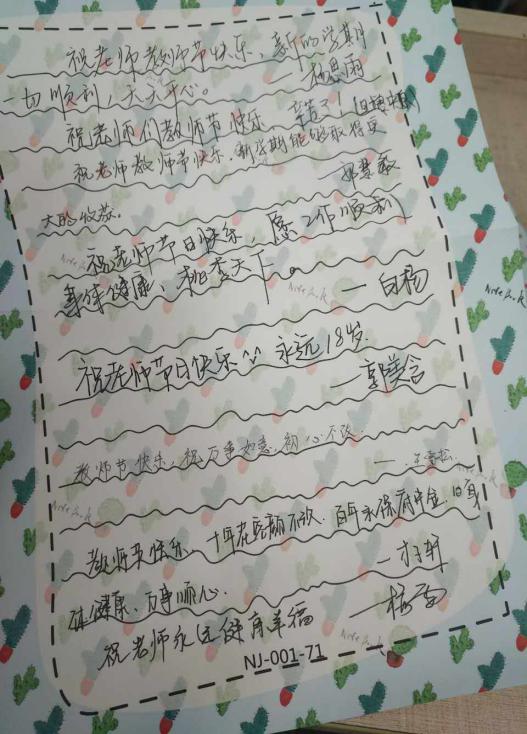 祝老师教师节快乐、新的学期
一切顺利，天天开心。 —
祝老师们教师节快乐 辛苦了！
祝老师教师节快乐，新学期能够取得更
大的收获。
祝老师节日快乐，愿工作顺利
身体健康、桃李天下。 — 白杨
祝老师节日快乐 永远18岁
— 郭美含
教师节快乐，祝万事如意，初心不改.
教师节快乐 十年花容颜不改. 百年永保 身
体健康、万事顺心.
祝老师永远健康幸福 — 杨雪
NJ-001-71